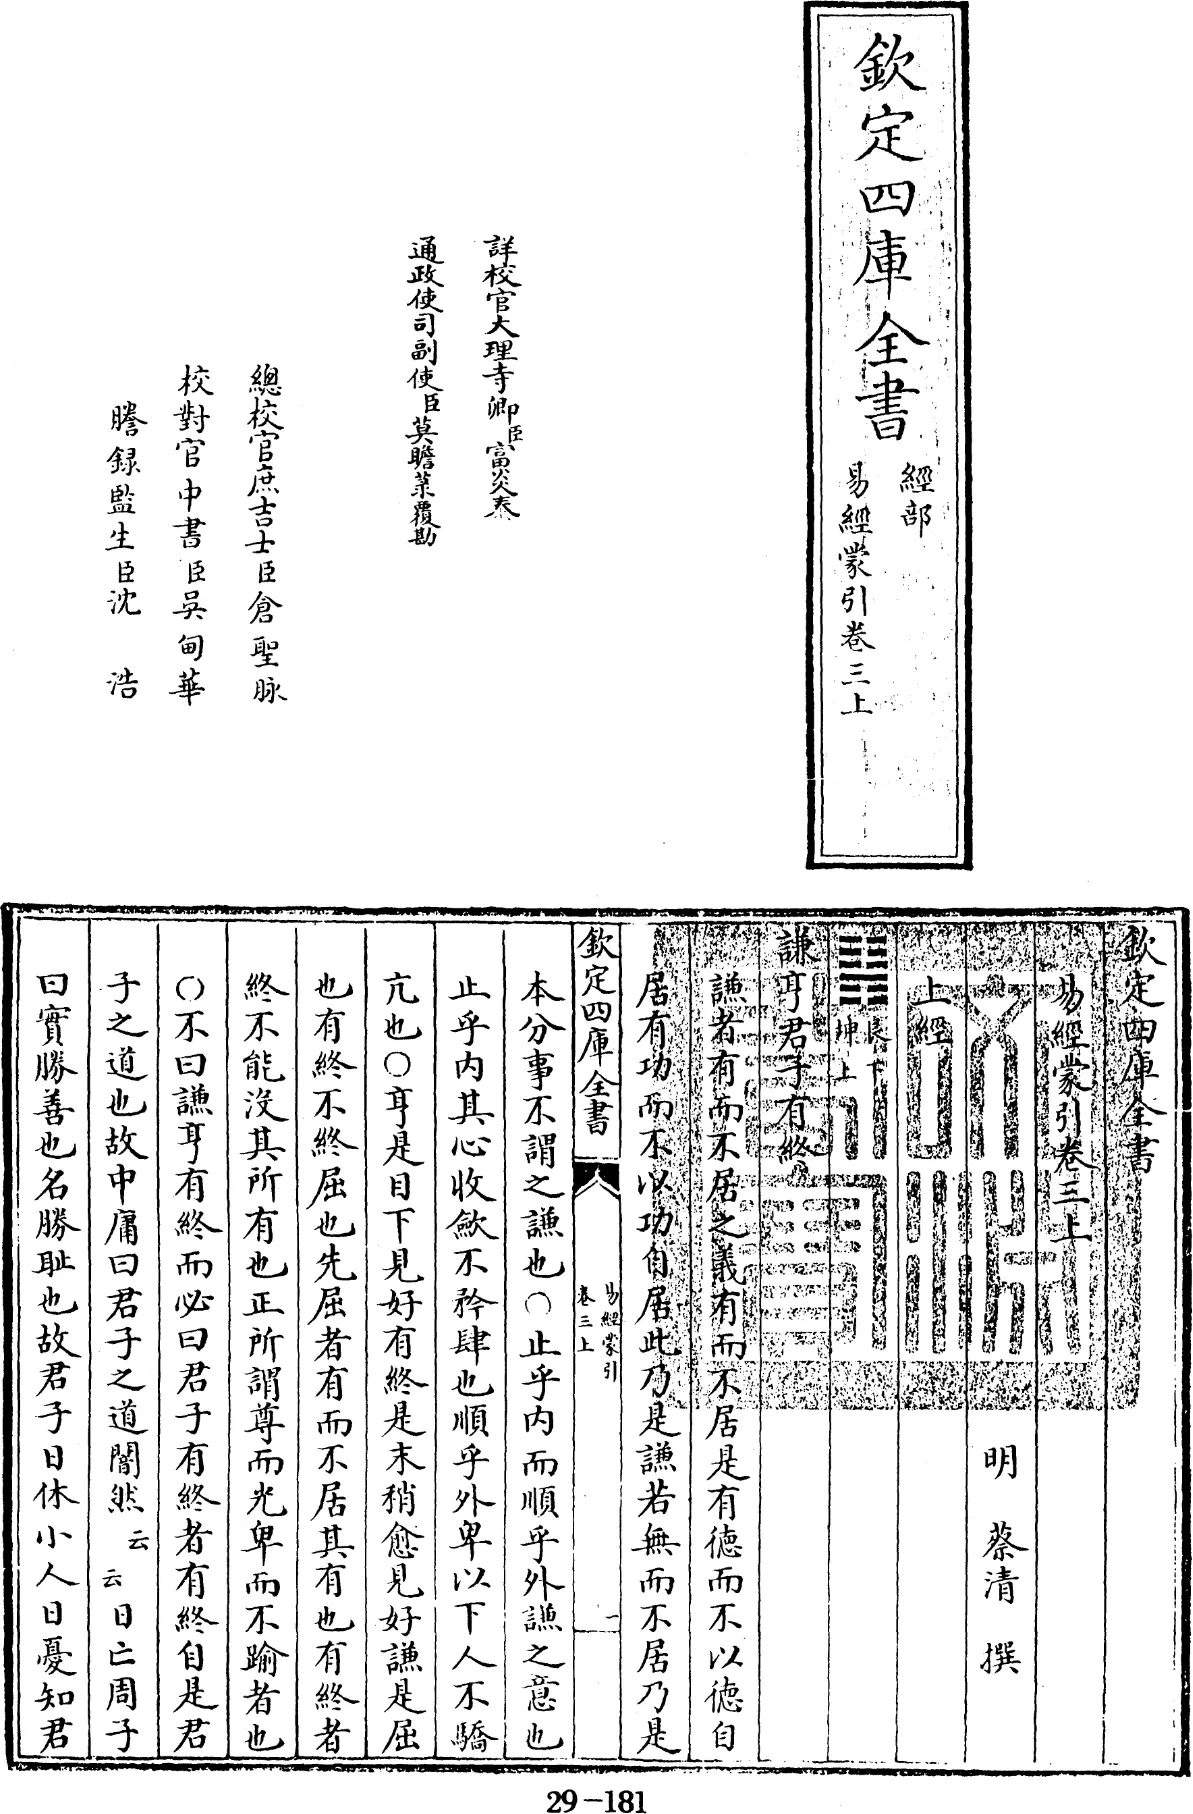 欽定四庫全書
經部
易經蒙引卷三上
詳校官大理寺卿臣富炎泰
通政使司副使臣莫瞻菉覆勘
總校官庶吉士臣倉聖脉
校對官中書臣吳甸華
謄録監生臣沈浩
欽定四庫全書
易經蒙引卷三上
明 蔡清 撰
上經
艮下
坤上
謙亨君子有終
謙者有而不居之義有而不居是有德而不以德自
居有功而不以功自居此乃是謙若無而不居乃是
欽定四庫全書
易經蒙引
卷三上
一
本分事不謂之謙也○止乎内而順乎外謙之意也
止乎内其心收斂不矜肆也順乎外卑以下人不驕
亢也○亨是目下見好有終是末稍愈見好謙是屈
也有終不終屈也先屈者有而不居其有也有終者
終不能沒其所有也正所謂尊而光卑而不踰者也
○不曰謙亨有終而必曰君子有終者有終自是君
子之道也故中庸曰君子之道闇然云云日亡周子
曰實勝善也名勝恥也故君子日休小人日憂知君
29-181